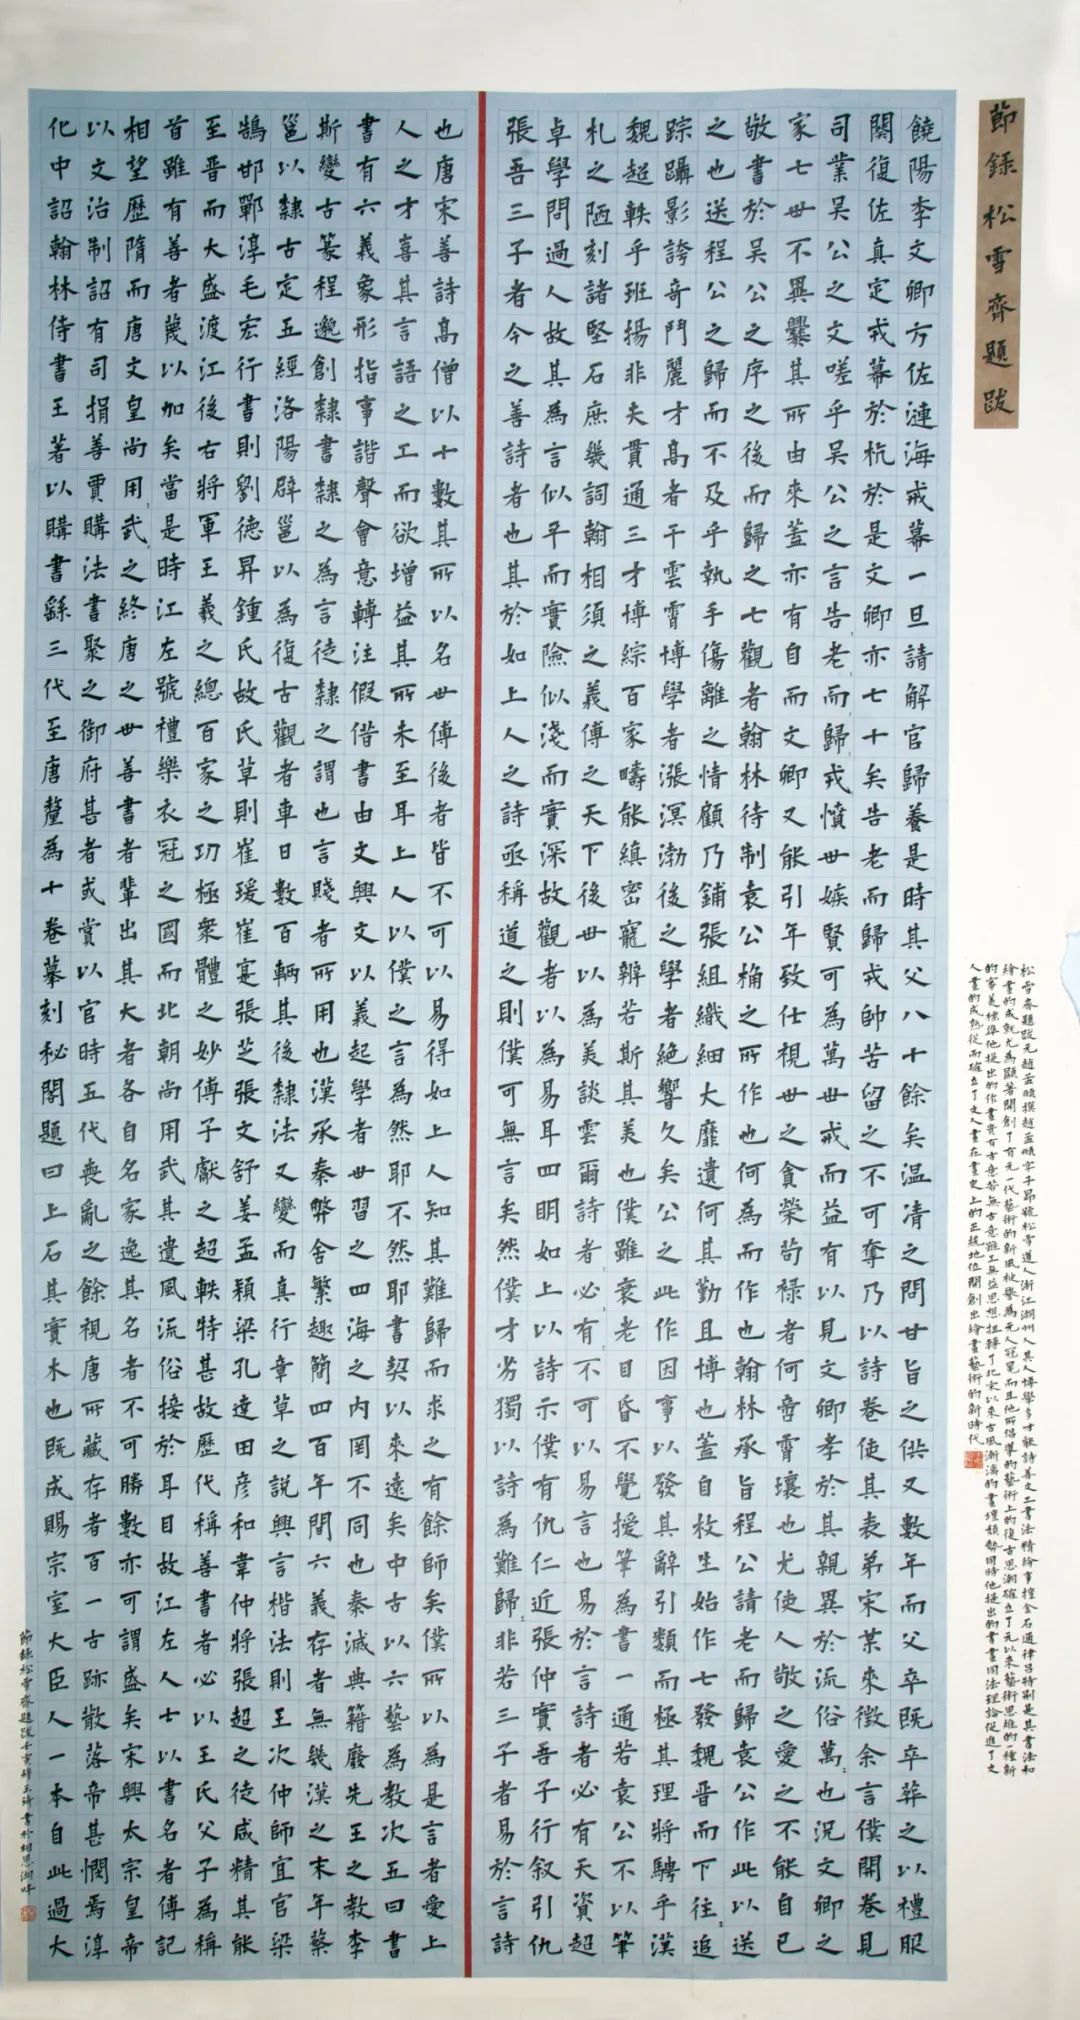 節録松雪齊題跋
松雪齋題跋元趙孟頫撰趙孟頫字子昂號松雪道人浙江湖州人其人博學多才能詩善文工書法精繪事擅金石通律吕特别是其書法和
繪畫的成就尤為顯著開創了有元一代藝術的新風被譽為元人冠冕而且他所倡導的藝術上的復古思潮確立了元以來藝術思維的一種新
的審美標準他提出的作畫貴有古意若無古意雖工無益思想扭轉了北宋以來古風漸漓的畫壇頹勢同時他提出的書畫同法理論促進了文
人畫的成熟從而確立了文人畫在畫史上的正統地位開創出繪畫藝術的新時代
饒陽李文卿方佐漣海戎幕一旦請解官歸養是時其父八十餘矣温凊之問甘旨之供又數年而父卒既卒葬之以禮服
闋復佐真定戎幕於杭於是文卿亦七十矣告老而歸戎帥苦留之不可奪乃以詩卷使其表弟宋某來徵余言僕開卷見
司業吳公之文嗟乎吳公之言告老而歸戎憤世嫉賢可為萬世戒而益有以見文卿孝於其親異於流俗萬也況文卿之
家七世不異爨其所由來蓋亦有自而文卿又能引年致仕視世之貪榮苟禄者何啻霄壤也尤使人敬之愛之不能自已
敬書於吳公之序之後而歸之七觀者翰林待制袁公桷之所作也何為而作也翰林承旨程公請老而歸袁公作此以送
之也送程公之歸而不及乎執手傷離之情顧乃鋪張組織細大靡遺何其勤且博也蓋自枚生始作七發魏晉而下往追
踪躡影誇奇鬥麗才高者干雲霄博學者漲溟渤後之學者絶響久矣公之此作因事以發其辭引類而極其理將騁乎漢
魏超軼乎班揚非夫貫通三才博綜百家疇能縝密竅辨若斯其美也僕雖衰老目昏不覺援筆為書一通若袁公不以筆
札之陋刻諸堅石庶幾詞翰相須之義傳之天下後世以為美談雲爾詩者必有不可以易言也易於言詩者必有天資超
卓學問過人故其為言似平而實險似淺而實深故觀者以為易耳四明如上以詩示僕有仇仁近張仲實吾子行叙引仇
張吾三子者今之善詩者也其於如上人之詩亟稱道之則僕可無言矣然僕才劣獨以詩為難歸非若三子者易於言詩
也唐宋善詩高僧以十數其所以名世傳後者皆不可以易得如上人知其難歸而求之有餘師矣僕所以為是言者愛上
人之才喜其言語之工而欲增益其所未至耳上人以僕之言為然耶不然耶書契以來遠矣中古以六藝為教次五曰書
書有六義象形指事諧聲會意轉注假借書由文興文以義起學者世習之四海之内罔不同也秦滅典籍廢先王之教李
斯變古篆程邈創隸書隸之為言徒隸之謂也言賤者所用也漢承秦弊舍繁趣簡四百年間六義存者無幾漢之末年蔡
邕以隸古定五經洛陽辟邕以為復古觀者車日數百輛其後隸法又變而真行章草之説興言楷法則王次仲師宜官梁
鵠邯鄲淳毛宏行書則劉德昇鍾氏故氏草則崔瑗崔寔張芝張文舒姜孟穎梁孔達田彦和韋仲將張超之徒咸精其能
至晉而大盛渡江後右將軍王羲之總百家之功極衆體之妙傳子獻之超軼特甚故歷代稱善書者必以王氏父子為稱
首雖有善者蔑以加矣當是時江左號禮樂衣冠之國而北朝尚用武其遺風流俗接於耳目故江左人士以書名者傳記
相望歷隋而唐文皇尚用武之終唐之世善書者輩出其大者各自名家逸其名者不可勝數亦可謂盛矣宋興太宗皇帝
以文治制詔有司捐善賈購法書聚之御府甚者或賞以官時五代喪亂之餘視唐所藏存者百一古跡散落帝甚憫焉淳
化中詔翰林侍書王著以購書繇三代至唐釐為十卷摹刻秘閣題曰上石其實木也既成賜宗室大臣人一本自此過大
節録松雪齋題跋壬寅玉琦書於相思湖畔